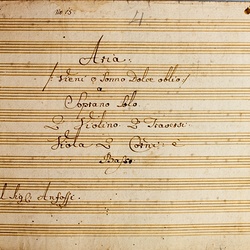 No 15.
4
Aria.
/ Vieni o Sonno Dolce oblio /
a
Soprano Solo
2 Violino 2 Traversi
Viola 2 Corni e
Basso
Del Sigl: Anfossi.